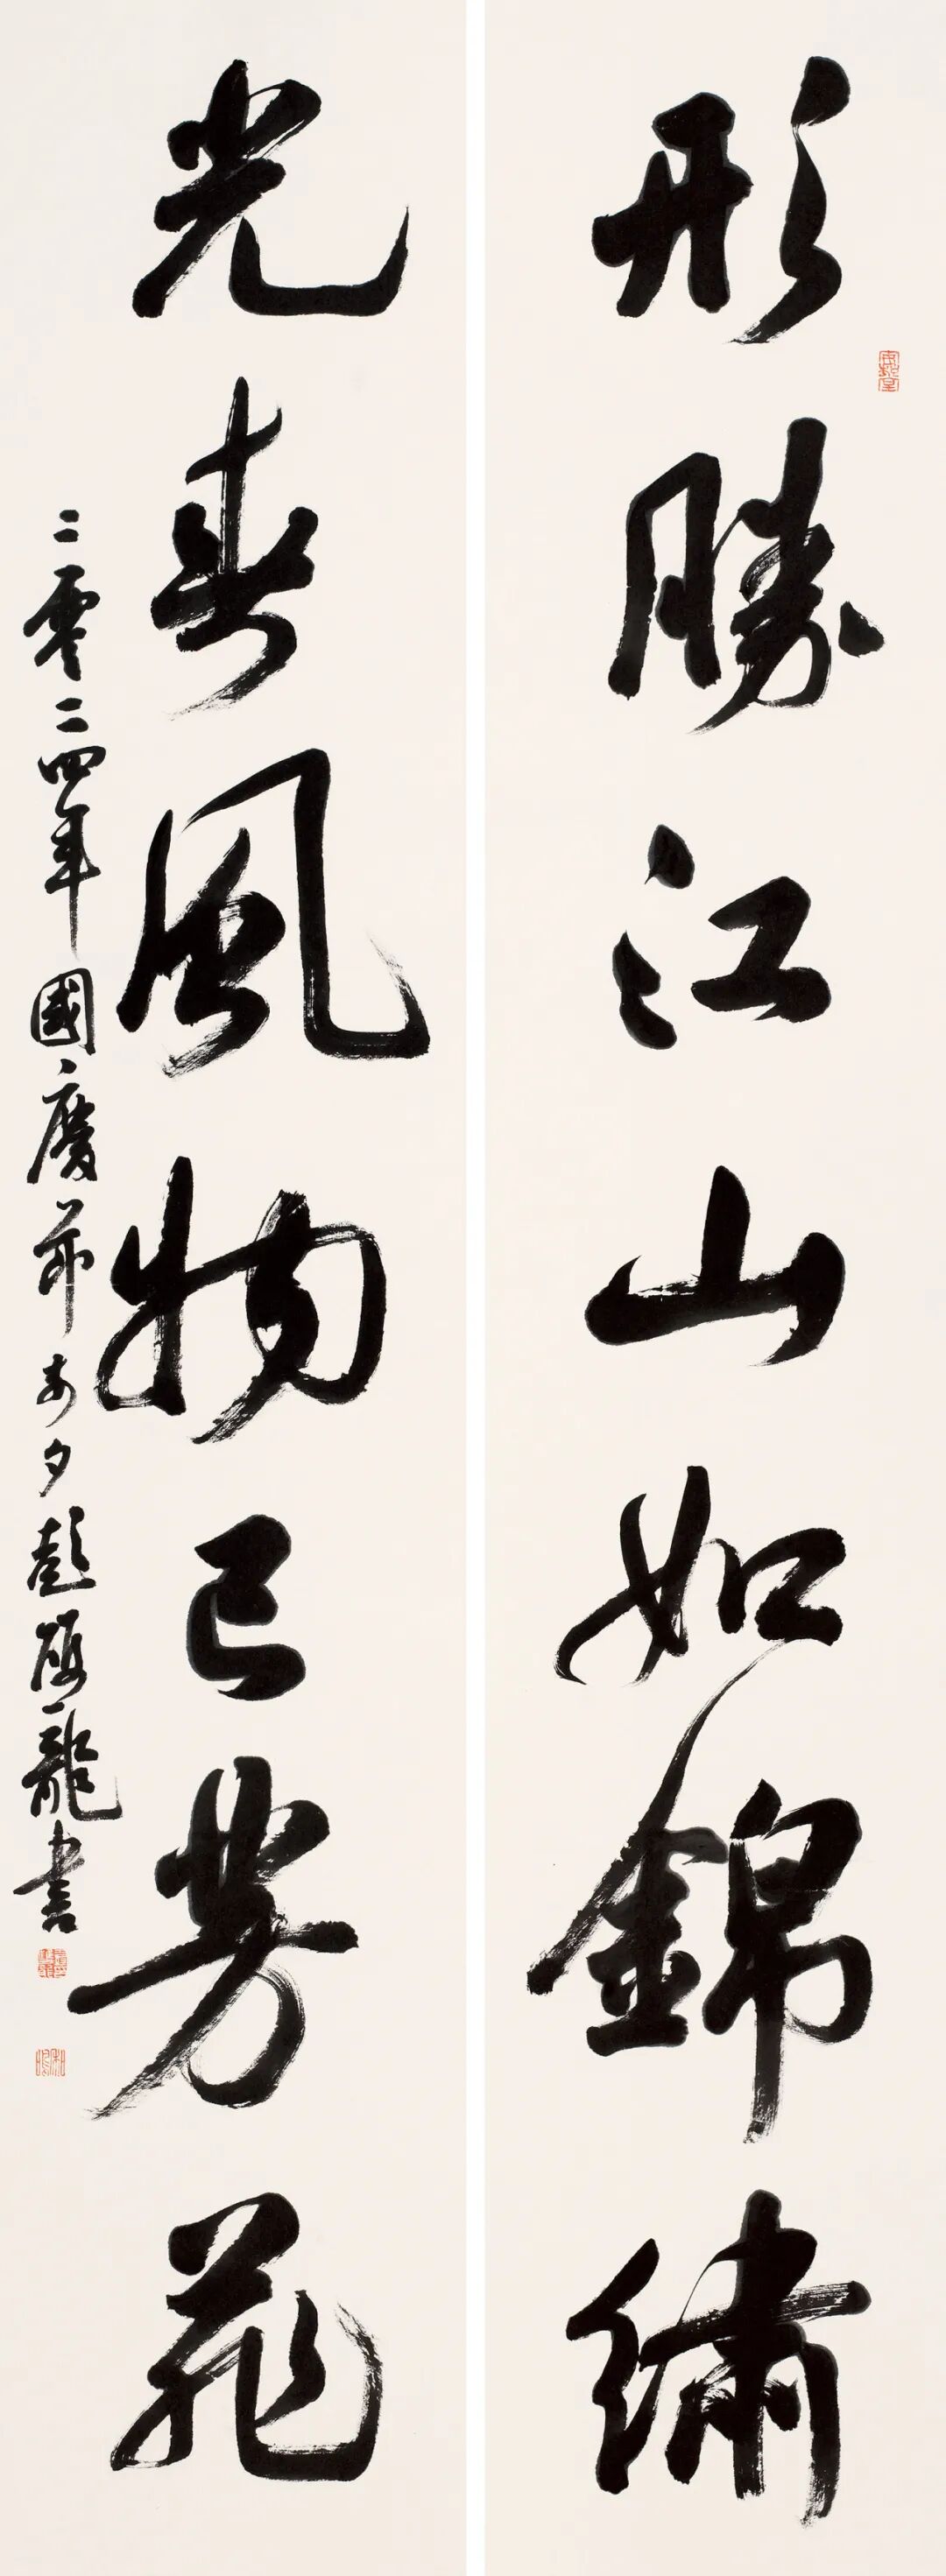 形勝江山如錦繡
光春風物已芳菲
二零二四年國慶節前夕彭德龍書